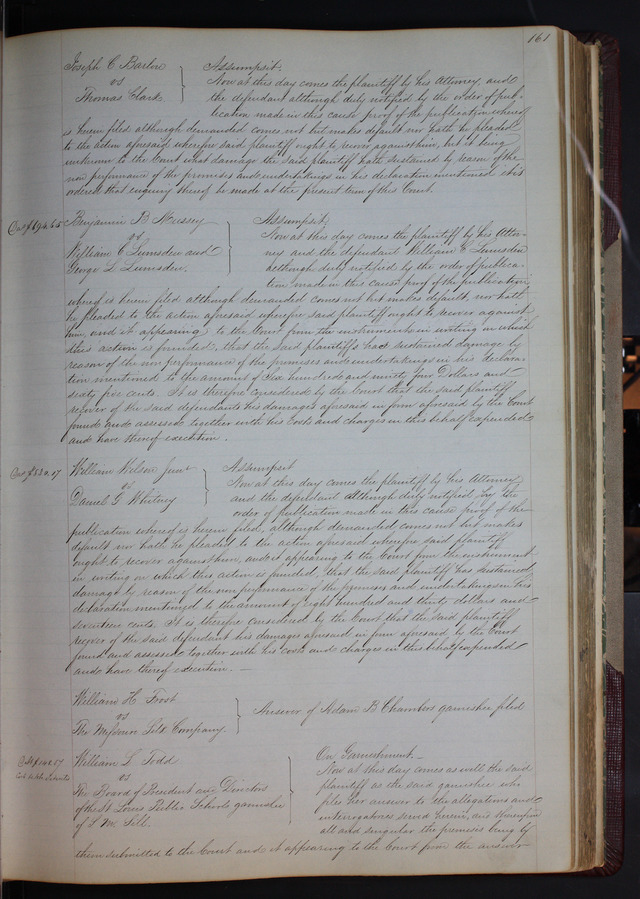 161
Joseph C Barlow
vs
Thomas Clark
Assumpsit.
Now at this day comes the plaintiff by his Attorney, and
the defendant although duly notified by the order of pub-
lication made in this cause proof of the publication whereof
is herein filed although demanded comes not but makes default nor hath he pleaded
to the action aforesaid wherefore said plaintiff ought to recover against him, but it being
unknown to the Court what damage the said plaintiff hath sustained by reason of the
non performance of the promises and undertakings in his declaration mentioned it is
ordered that enquiry thereof be made at the present term of this Court.
Benjamin B Mussey
vs
William C Lumsden and
George L Lumsden.
Assumpsit,
Now at this day comes the plaintiff by his Attor-
ney and the defendant William C Lumsden
although duly notified by the order of publica-
tion made in this cause proof of the publication
whereof is herein filed although demanded comes not but makes default, nor hath
he pleaded to the action aforesaid wherefore said plaintiff ought to recover against
him, and it appearing to the Court from the instruments in writing on which
this action is founded, that the said plaintiff has sustained damage by
reason of the non performance of the promises and undertakings in his declara-
tion mentioned to the amount of Six hundred and ninety four Dollars and
sixty five cents. It is therefore considered by the Court that the said plaintiff
recover of the said defendants his damages aforesaid in form aforesaid by the Court
found and assessed together with his costs and charges in this behalf expended
and have thereof execution.
$830.17
William Wilson Junr
vs
Daniel G Whitney
Assumpsit
Now at this day comes the plaintiff by his Attorney
and the defendant although duly notified by the
order of publication made in this cause proof of the
publication whereof is herein filed, although demanded comes not but makes
default nor hath he pleaded to the action aforesaid wherefore said plaintiff
ought to recover against him, and it appearing to the Court from the instrument
in writing on which this action is founded, that the said plaintiff has sustained
damage by reason of the non performance of the promises and undertakings in his
declaration mentioned to the amount of Eight hundred and thirty dollars and
seventeen cents. It is therefore considered by the Court that the said plaintiff
recover of the said defendant his damages aforesaid in form aforesaid, by the Court
found and assessed together with his costs and charges in this behalf expended
and have thereof execution.
William H Frost
vs
The Missouri Silk Company.
Answer of Adam B Chambers garnishee filed
William L Todd
vs
The Board of President and Directors
of the St Louis Public Schools garnishee
of L M Sill.
On Garnishment.
Now at this day comes as well the said
plaintiff as the said garnishee who
files her answer to the allegations and
interrogatories served herein, and thereupon
all and singular the premises being by
them submitted to the Court and it appearing to the Court from the answer